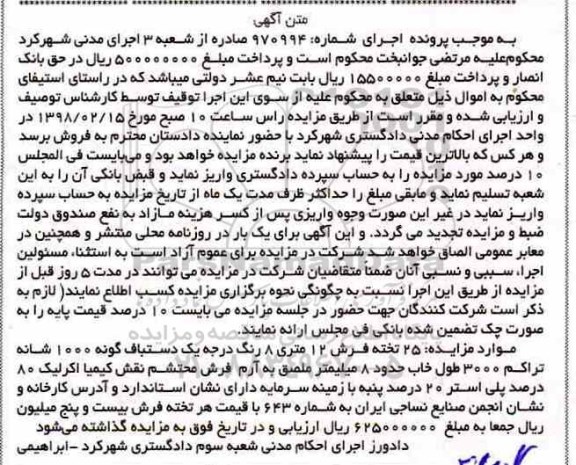 متن آگهی
به موجب پرونده اجرای شماره: ۹۷۰۹۹۴ صادره از شعبه ۳ اجرای مدنی شهرکرد
محکوم‌علیه مرتضی جوانبخت محکوم است و پرداخت مبلغ ۵۰۰۰۰۰۰۰۰ ریال در حق بانک
انصار و پرداخت مبلغ ۱۵۵۰۰۰۰۰ ریال بابت نیم عشر دولتی میباشد که در راستای استیفای
محکوم به اموال ذیل متعلق به محکوم علیه از سوی این اجرا توقیف توسط کارشناس توصیف
و ارزیابی شده و مقرر است از طریق مزایده راس ساعت ۱۰ صبح مورخ ۱۳۹۸/۰۲/۱۵ در
واحد اجرای احکام مدنی دادگستری شهرکرد با حضور نماینده دادستان محترم به فروش برسد
و هر کس که بالاترین قیمت را پیشنهاد نماید برنده مزایده خواهد بود و می‌بایست فی المجلس
۱۰ درصد مورد مزایده را به حساب سپرده دادگستری واریز نماید و قبض بانکی آن را به این
شعبه تسلیم نماید و مابقی مبلغ را حداکثر ظرف مدت یک ماه از تاریخ مزایده به حساب سپرده
واریز نماید در غیر این صورت وجوه واریزی پس از کسر هزینه مازاد به نفع صندوق دولت
ضبط و مزایده تجدید می گردد. و این آگهی برای یک بار در روزنامه محلی منتشر و همچنین در
معابر عمومی الصاق خواهد شد شرکت در مزایده برای عموم آزاد است به استثناء مسئولین
اجرا، سببی و نسبی آنان ضمناً متقاضیان شرکت در مزایده می توانند در مدت ۵ روز قبل از
مزایده از طریق این اجرا نسبت به چگونگی نحوه برگزاری مزایده کسب اطلاع نمایند( لازم به
ذکر است شرکت کنندگان جهت حضور در جلسه مزایده می بایست ۱۰ درصد قیمت پایه را به
صورت چک تضمین شده بانکی فی مجلس ارائه نمایند.
موارد مزایده: ۲۵ تخته فرش ۱۲ متری ۸ رنگ درجه یک دستباف گونه ۱۰۰۰ شانه
تراکم ۳۰۰۰ طول خاب حدود ۸ میلیمتر ملصق به آرم فرش محتشم نقش کیمیا اکرلیک ۸۰
درصد پلی استر ۲۰ درصد پنبه با زمینه سرمایه دارای نشان استاندارد و آدرس کارخانه و
نشان انجمن صنایع نساجی ایران به شماره ۶۴۳ با قیمت هر تخته فرش بیست و پنج میلیون
ریال جمعا به مبلغ ۶۲۵۰۰۰۰۰۰ ریال ارزیابی و در تاریخ فوق به مزایده گذاشته می‌شود
دادورز اجرای احکام مدنی شعبه سوم دادگستری شهرکرد -ابراهیمی